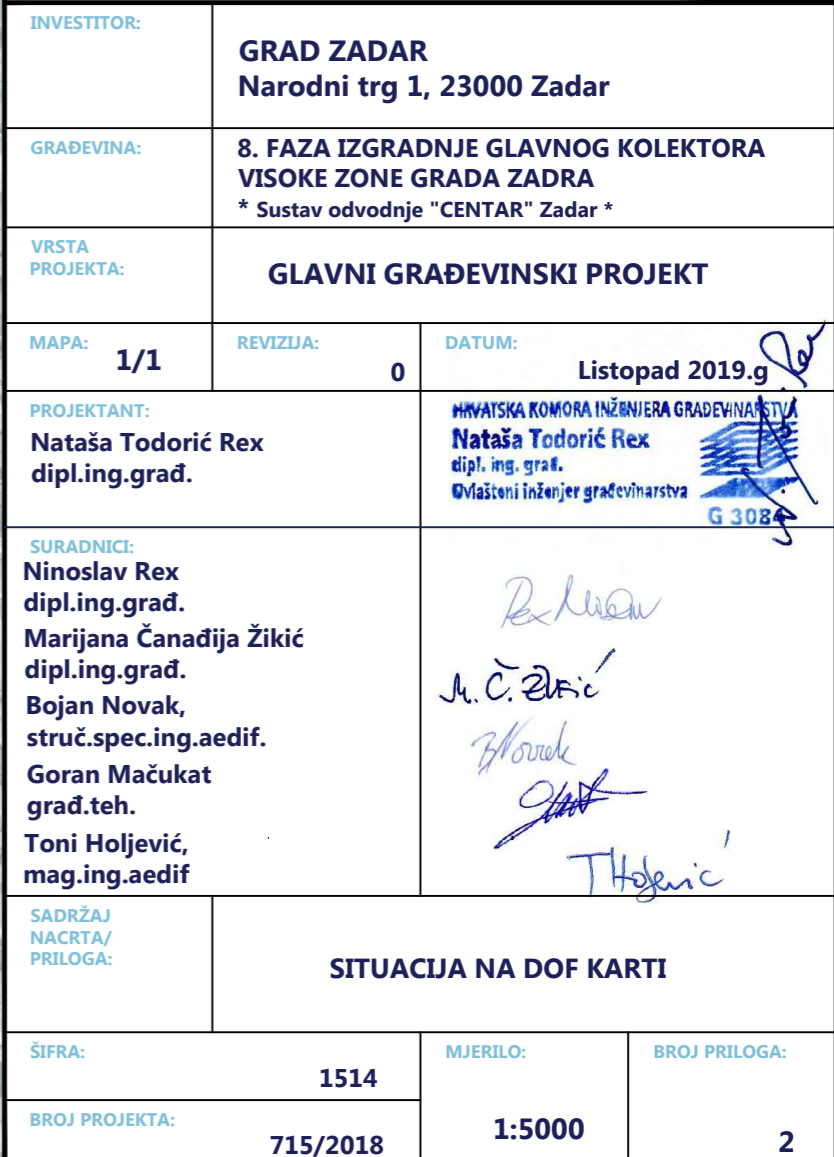 INVESTITOR:
GRAD ZADAR
Narodni trg 1, 23000 Zadar
GRAĐEVINA:
8. FAZA IZGRADNJE GLAVNOG KOLEKTORA
VISOKE ZONE GRADA ZADRA
* Sustav odvodnje "CENTAR" Zadar *
VRSTA
PROJEKTA:
GLAVNI GRAĐEVINSKI PROJEKT
MAPA:
1/1
REVIZIJA:
0
DATUM:
Listopad 2019.g
PROJEKTANT:
Nataša Todorić Rex
dipl.ing.građ.
HRVATSKA KOMORA INŽENJERA GRAĐEVINARSTVA
Nataša Todorić Rex
dipl. ing. građ.
Ovlašteni inženjer građevinarstva
G 3084
SURADNICI:
Ninoslav Rex
dipl.ing.građ.
Marijana Čanađija Žikić
dipl.ing.građ.
Bojan Novak,
struč.spec.ing.aedif.
Goran Mačukat
građ.teh.
Toni Holjević,
mag.ing.aedif
Rex
M. Č. Žikić
BNovak
THoljević
SADRŽAJ
NACRTA/
PRILOGA:
SITUACIJA NA DOF KARTI
ŠIFRA:
1514
MJERILO:
1:5000
BROJ PRILOGA:
2
BROJ PROJEKTA:
715/2018